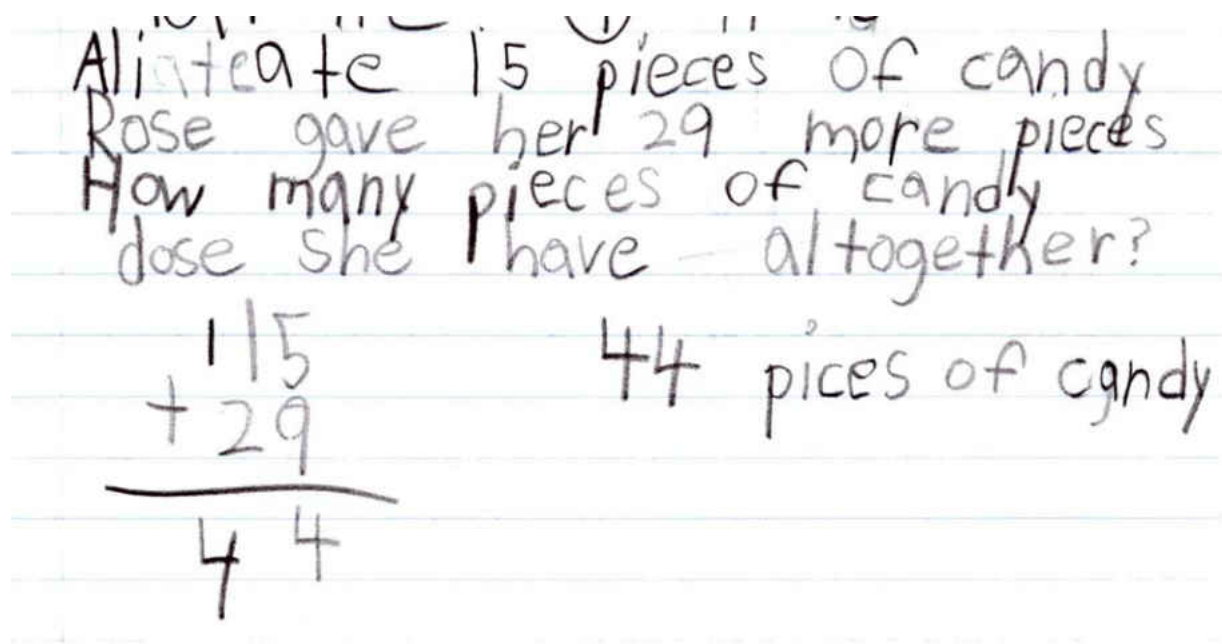 Ali ate 15 pieces of candy
Rose gave her 29 more pieces
How many pieces of candy
dose she have altogether?
1 15
+ 29
44
44 pices of candy